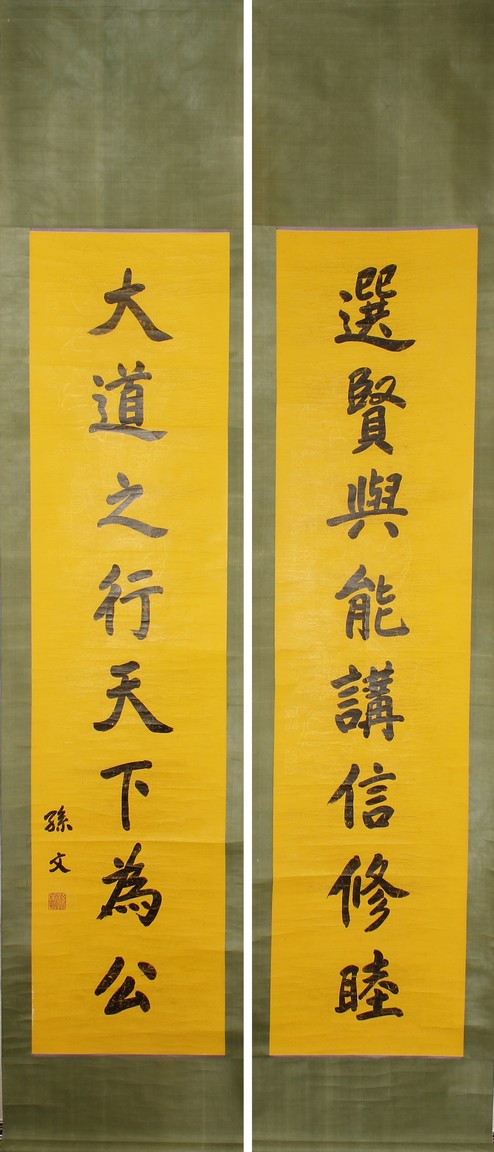 選賢與能講信修睦
大道之行天下為公
孫文